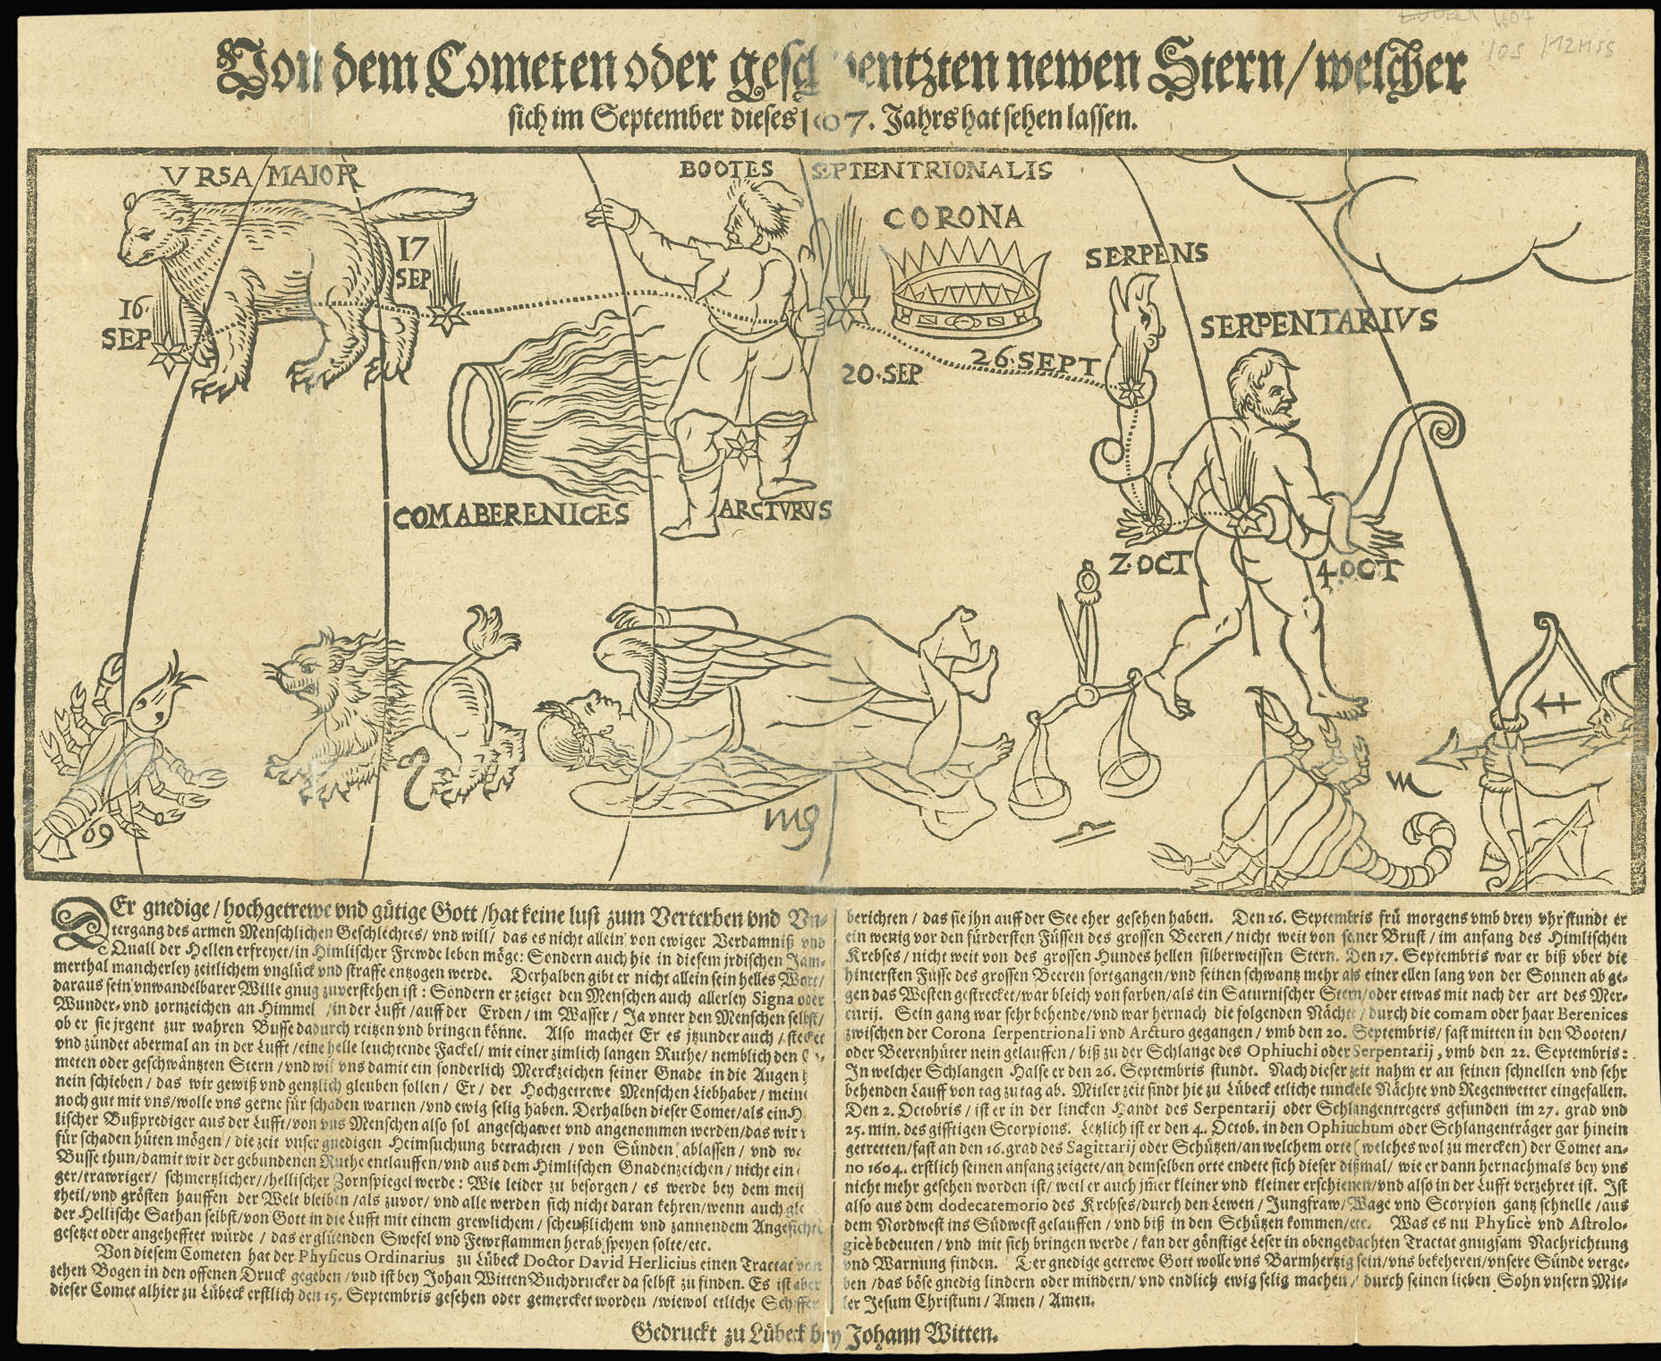 Von dem Cometen oder geschwentzten newen Stern / welcher
sich im September dieses 1607. Jahrs hat sehen lassen.
VRSA MAIOR
BOOTES SEPTENTRIONALIS
CORONA
SERPENS
SERPENTARIVS
17
SEP
16
SEP
20·SEP
26·SEPT
COMABERENICES
ARCTVRVS
2·OCT
4·OCT
DEr gnedige / hochgetrewe vnd gütige Gott / hat keine lust zum Verterben vnd Vn-
tergang des armen Menschlichen Geschlechtes / vnd will / das es nicht allein von ewiger Verdamniß vnd
Quall der Hellen erfreyet / in Himlischer Frewde leben möge: Sondern auch hie in diesem jrdischen Jam-
merthal mancherley zeitlichem vnglück vnd straffe entzogen werde. Derhalben gibt er nicht allein sein helles Wort /
daraus sein vnwandelbarer Wille gnug zuverstehen ist: Sondern er zeiget den Menschen auch allerley Signa oder
Wunder- vnd zornzeichen an Himmel / in der Lufft / auff der Erden / im Wasser / Ja vnter den Menschen selbst /
ob er sie jrgent zur wahren Busse dadurch reitzen vnd bringen könne. Also machet Er es jtzunder auch / stecket
vnd zündet abermal an in der Lufft / eine helle leuchtende Fackel / mit einer zimlich langen Ruthe / nemblich den
meten oder geschwäntzten Stern / vnd wil vns damit ein sonderlich Merckzeichen seiner Gnade in die Augen
nein schieben / das wir gewiß vnd gentzlich gleuben sollen / Er / der Hochgetrewe Menschen Liebhaber / meine
noch gut mit vns / wolle vns gerne für schaden warnen / vnd ewig selig haben. Derhalben dieser Comet / als ein
lischer Bußprediger aus der Lufft / von vns Menschen also sol angeschawet vnd angenommen werden / das wir
für schaden hüten mögen / die zeit vnser gnedigen Heimsuchung betrachten / von Sünden ablassen / vnd
Busse thun / damit wir der gebundenen Ruthe entlauffen / vnd aus dem Himlischen Gnadenzeichen / nicht ein
ger / trawriger / schmertzlicher / / hellischer Zornspiegel werde: Wie leider zu besorgen / es werde bey dem
theil / vnd grösten hauffen der Welt bleiben / als zuvor / vnd alle werden sich nicht daran kehren / wenn auch
der Hellische Sathan selbst / von Gott in die Lufft mit einem grewlichem / scheußlichem vnd zannendem Angesichte
gesetzet oder angehefftet würde / das erglüenden Swefel vnd Fewrflammen herab speyen solte / etc.
Von diesem Cometen hat der Physicus Ordinarius zu Lübeck Doctor David Herlicius einen Tractat von
zehen Bogen in den offenen Druck gegeben / vnd ist bey Johan Witten Buchdrucker da selbst zu finden. Es ist aber
dieser Comet alhier zu Lübeck erstlich den 15. Septembris gesehen oder gemercket worden / wiewol etliche Schiffer
berichten / das sie jhn auff der See eher gesehen haben. Den 16. Septembris frü morgens vmb drey vhr stundt er
ein wenig vor den fürdersten Füssen des grossen Beeren / nicht weit von seiner Brust / im anfang des Himlischen
Krebses / nicht weit von des grossen Hundes hellen silberweissen Stern. Den 17. Septembris war er biß vber die
hintersten Füsse des grossen Beeren fortgangen / vnd seinen schwantz mehr als einer ellen lang von der Sonnen ab ge-
gen das Westen gestrecket / war bleich von farben / als ein Saturnischer Stern / oder etwas mit nach der art des Mer-
curij. Sein gang war sehr behende / vnd war hernach die folgenden Nächte / durch die comam oder haar Berenices
zwischen der Corona serpentrionali vnd Arcturo gegangen / vmb den 20. Septembris / fast mitten in den Booten /
oder Beerenhüter nein gelauffen / biß zu der Schlange des Ophiuchi oder Serpentarij, vmb den 22. Septembris:
In welcher Schlangen Halse er den 26. Septembris stundt. Nach dieser zeit nahm er an seinen schnellen vnd sehr
behenden Lauff von tag zu tag ab. Mitler zeit sindt hie zu Lübeck etliche tunckele Nächte vnd Regenwetter eingefallen.
Den 2. Octobris / ist er in der lincken Handt des Serpentarij oder Schlangentregers gefunden im 27. grad vnd
25. min. des gifftigen Scorpions. Letzlich ist er den 4. Octob. in den Ophiuchum oder Schlangenträger gar hinein
getretten / fast an den 16. grad des Sagittarij oder Schützen / an welchem orte ( welches wol zu mercken) der Comet an-
no 1604. erstlich seinen anfang zeigete / an demselben orte endete sich dieser dißmal / wie er dann hernachmals bey vns
nicht mehr gesehen worden ist / weil er auch jmer kleiner vnd kleiner erschienen / vnd also in der Lufft verzehret ist. Ist
also aus dem dodecatemorio des Krebses / durch den Lewen / Jungfraw / Wage vnd Scorpion gantz schnelle / aus
dem Nordwest ins Südwest gelauffen / vnd biß in den Schützen kommen / etc. Was es nu Physicè vnd Astrolo-
gicè bedeuten / vnd mit sich bringen werde / kan der gönstige Leser in obengedachten Tractat gnugsam Nachrichtung
vnd Warnung finden. Der gnedige getrewe Gott wolle vns Barmhertzig sein / vns bekeheren / vnsere Sünde verge-
ben / das böse gnedig lindern oder mindern / vnd endlich ewig selig machen / durch seinen lieben Sohn vnsern Mit-
ler Jesum Christum / Amen / Amen.
Gedruckt zu Lübeck bey Johann Witten.